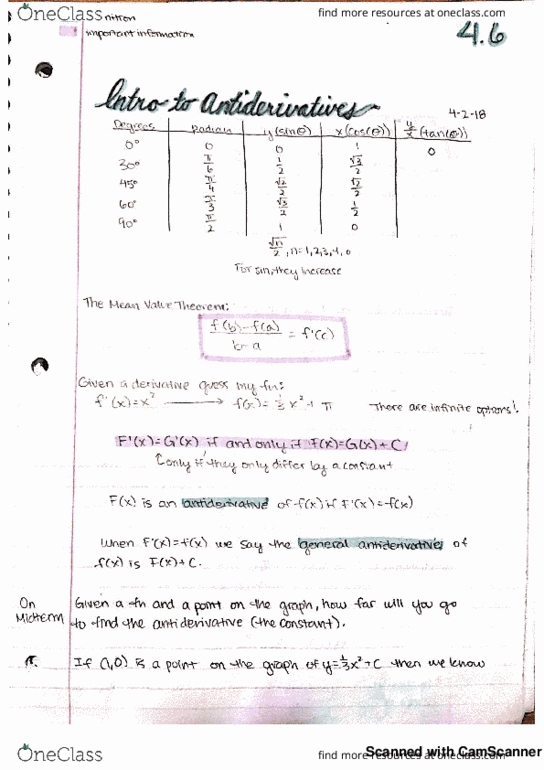 OneClass
find more resources at oneclass.com
nitron
important information
4.6
Intro to Antiderivatives
4-2-18
Degrees Radian y(sinθ) x(cos(θ)) y/x (tan(θ))
0° 0 0 1 0
30° π/6 1/2 √3/2
45° π/4 √2/2 √2/2
60° π/3 √3/2 1/2
90° π/2 1 0
√n/2, n=1,2,3,4,0
For sin, they increase
The Mean Value Theorem:
f(b)-f(a)/b-a = f'(c)
Given a derivative guess my fn:
f'(x)=x² → f(x)=1/3 x³+ π There are infinite options!
F'(x)=G'(x) if and only if F(x)=G(x)+C
only if they only differ by a constant
F(x) is an antiderivative of f(x) if F'(x)=f(x)
When F'(x)=f(x) we say the general antiderivative of
f(x) is F(x)+C.
On Given a fn and a point on the graph, how far will you go
Midterm to find the antiderivative (the constant).
If (1,0) is a point on the graph of y=1/3x³+C then we know
OneClass
find more resources at oneclass.com
Scanned with CamScanner